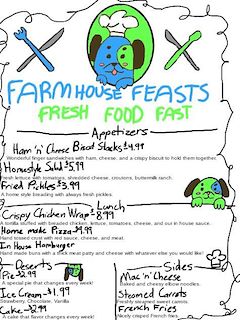 FARMHOUSE FEASTS
FRESH FOOD FAST
Appetizers
Ham 'n' Cheese Biscuit Stacks $4.99
Wonderful finger sandwiches with ham, cheese, and a crispy biscuit to hold them together.
Homestyle Salad $5.99
Fresh lettuce with tomatoes, shredded cheese, croutons, buttermilk ranch.
Fried Pickles $3.99
A home style breading with always fresh pickles.
Lunch
Crispy Chicken Wrap 8.99
A tortilla stuffed with breaded chicken, lettuce, tomatoes, cheese, and our in house sauce.
Home made Pizza $9.99
Hand tossed crust with sauce, cheese, and meat.
In House Hamburger
Hand made buns with a thick meat patty and cheese with whatever else you would like!
Deserts
Pie $2.99
A special pie that changes every week!
Ice Cream $1.99
Strawberry, Chocolate, Vanilla
Cake $2.99
A cake that changes every week!
Sides
Mac 'n' Cheese
Baked and cheesy elbow noodles.
Steamed Carrots
Freshly steamed sweet carrots.
French Fries
Nicely crisped French fries.